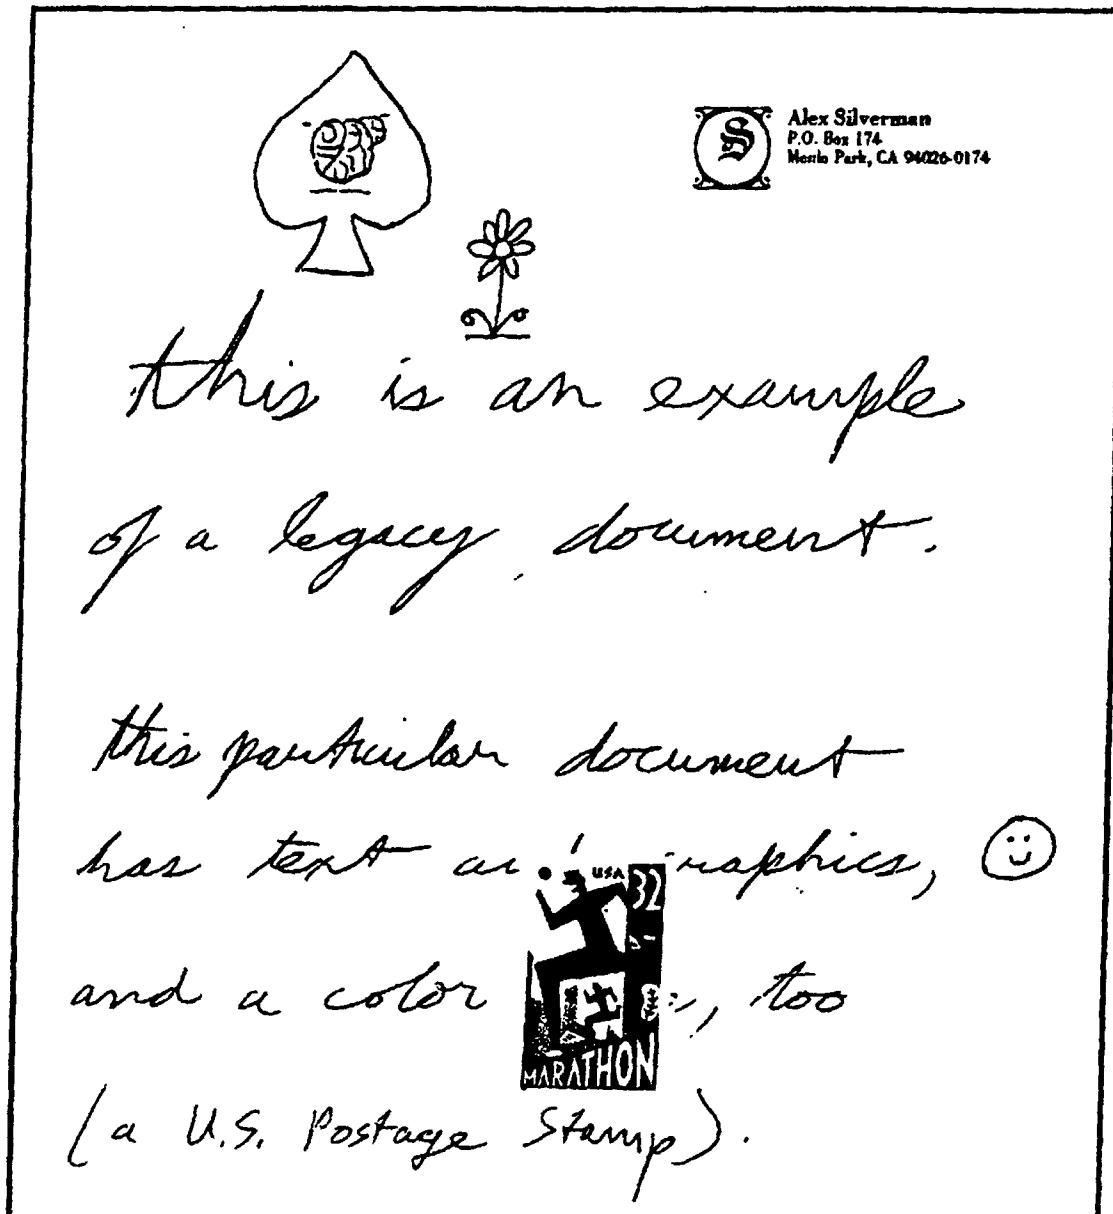 S
Alex Silverman
P.O. Box 174
Menlo Park, CA 94026-0174
this is an example
of a legacy document.
this particular document
has text raphics,
and a color , too
USA 32
MARATHON
(a U.S. Postage Stamp).